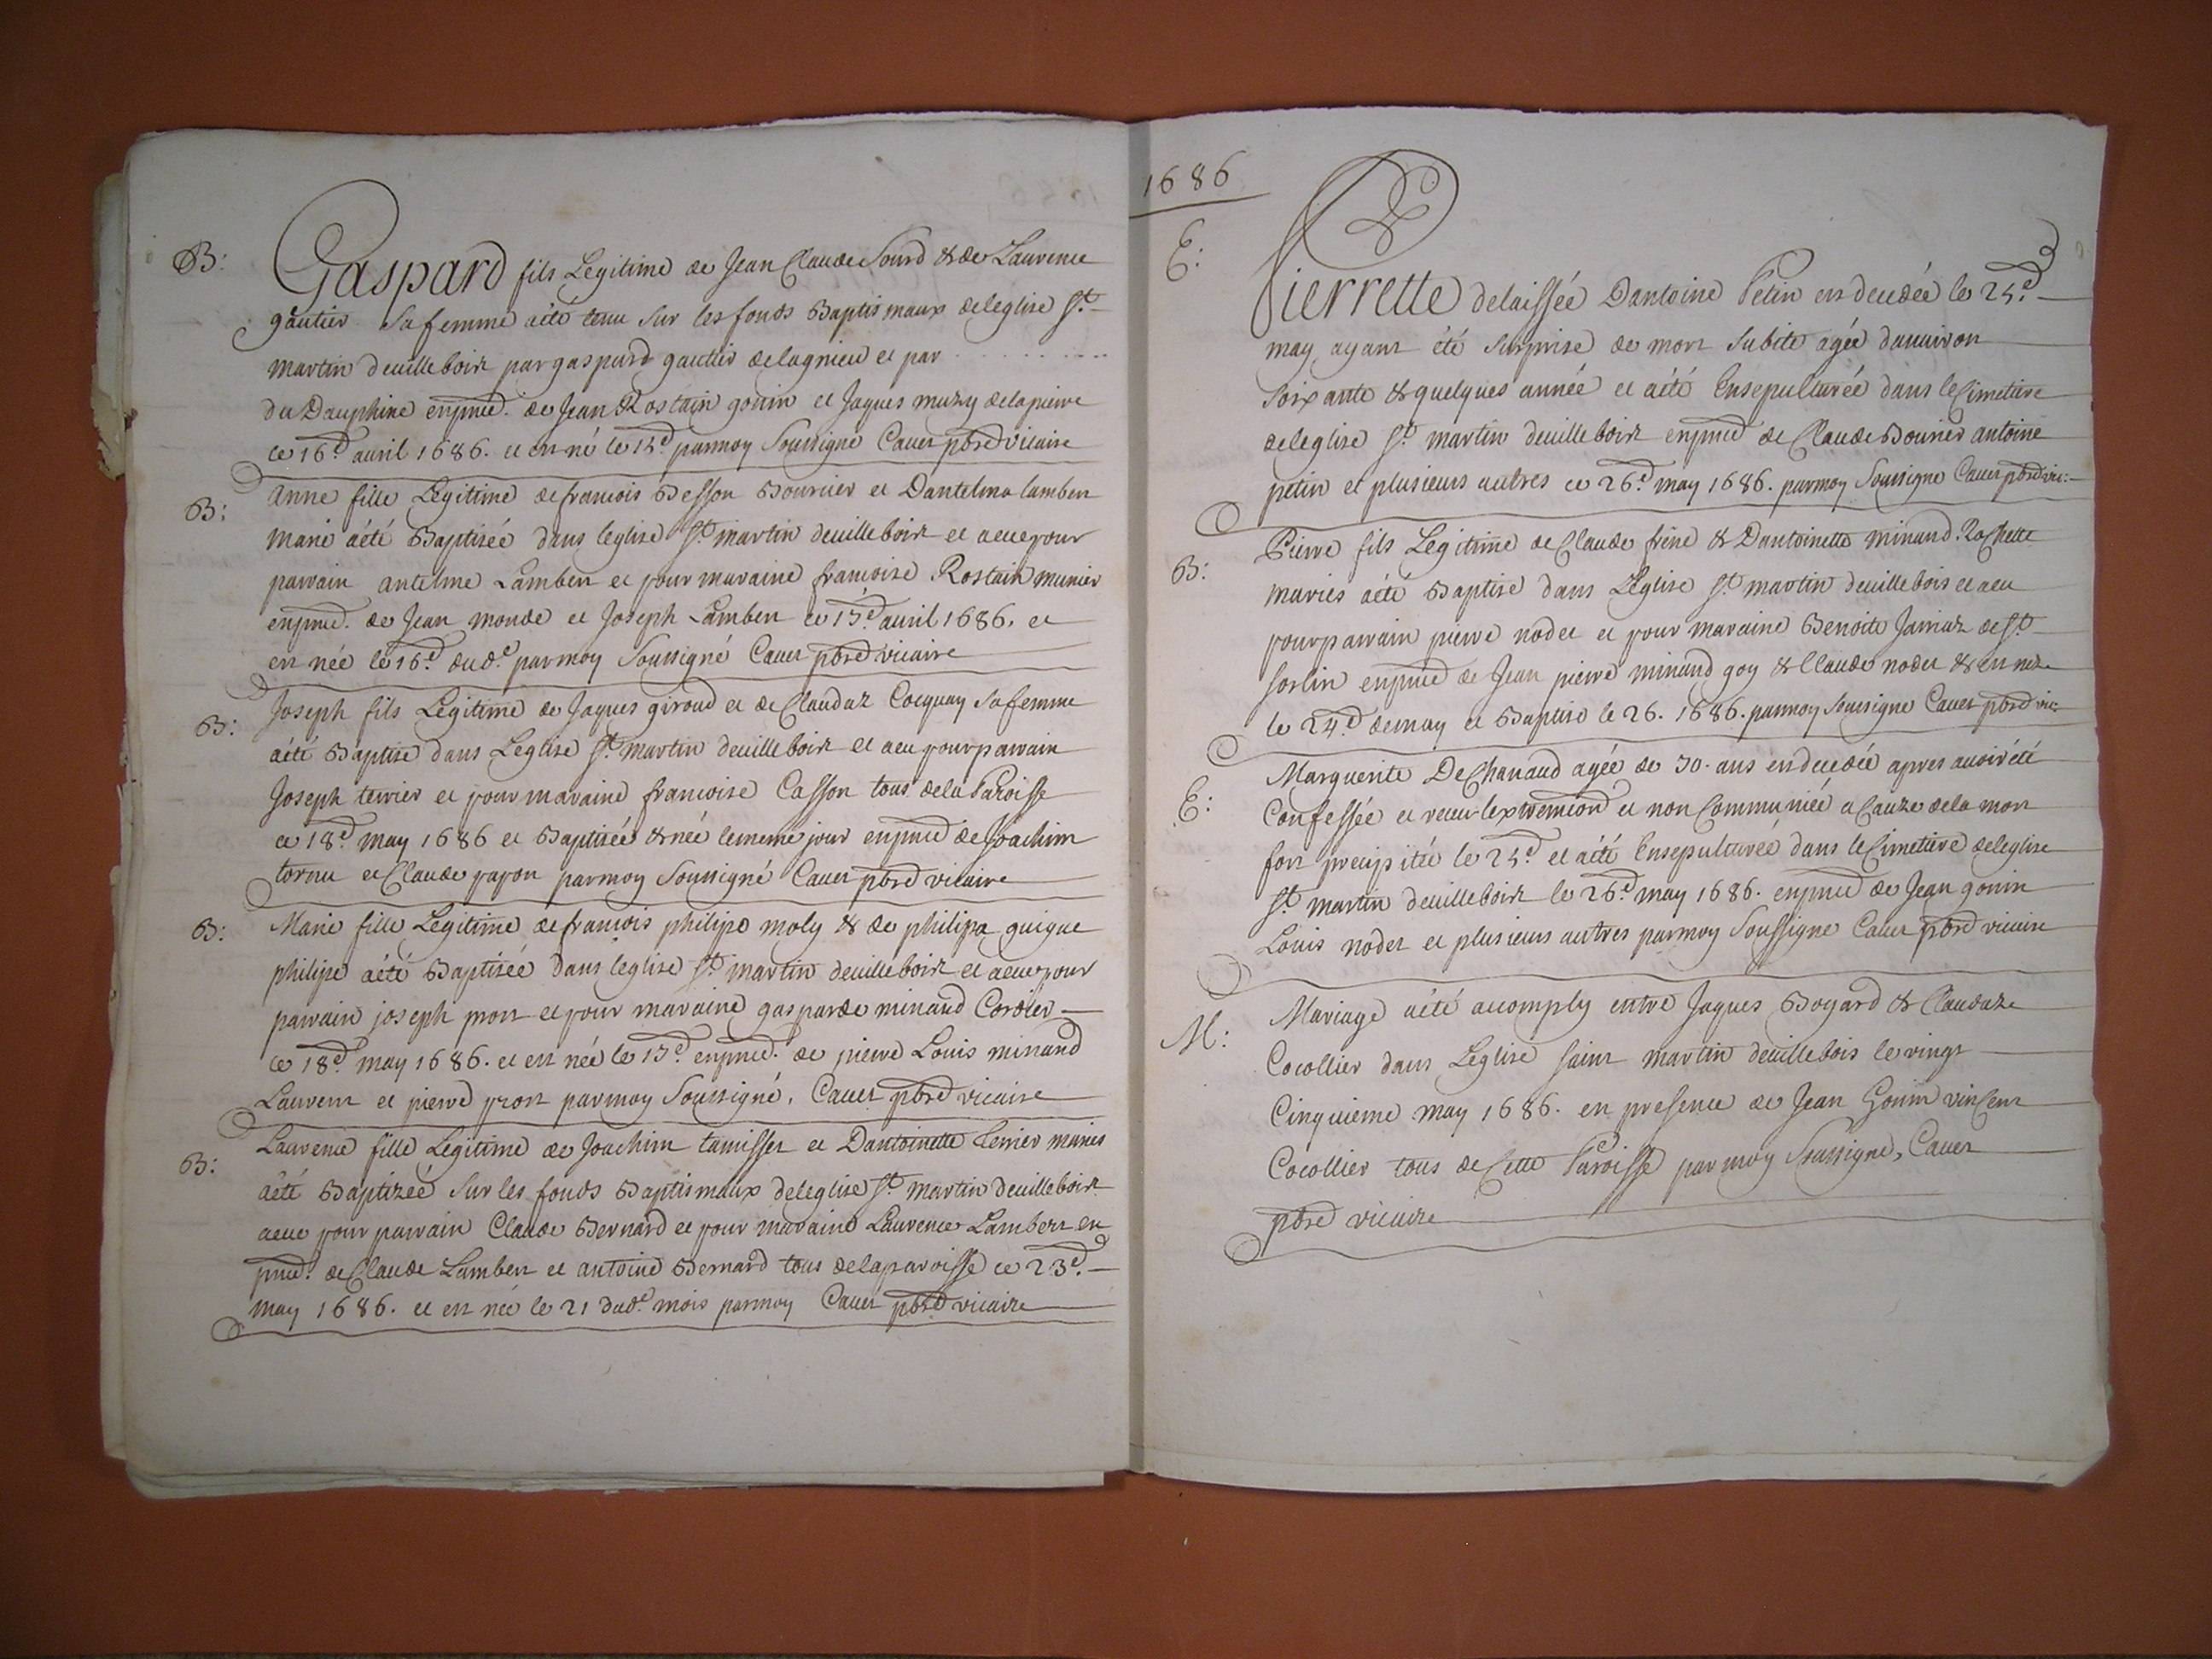 B: Gaspard fils Legitime de Jean Claude Sourd & de Laurence
gautier sa femme aété tenu sur les fonds Baptismaux deleglise St
martin deuilleboix par gaspard gautier delagnieu et par . . . . . . . .
du Dauphine enpnce. de Jean Rostain gonin et Jaques muzy delapierre
ce 16.e auril 1686. et est né le 15.e parmoy Soussigné Cauet pbre vicaire
B: anne fille Legitime defrancois Besson Bourcier et Dantelma lambert
marié aété Baptisée dans leglise St martin deuilleboix et aeuepour
parrain antelme Lambert et pour maraine francoise Rostain munier
enpnce. de Jean monde et Joseph Lambert ce 17.e auril 1686. et
est née le 16.e dud.t parmoy Soussigné Cauet pbre vicaire
B: Joseph fils Legitime de Jaques giroud et de Claudaz Cocquay Safemme
aété Baptisé dans Leglise St martin deuilleboix et aeu pourparrain
Joseph terrier et pour maraine francoise Casson tous dela Paroisse
ce 18.e may 1686 et Baptisée & née lememe jour enpnce de Joachim
tornu et Claude papon parmoy Soussigné Cauet pbre vicaire
B: Marie fille Legitime defrancois philipe moly & de philipa guigue
philipe aété Baptisée dans leglise St martin deuilleboix et aeuepour
parrain joseph pron et pour maraine gasparde minand Cordier
ce 18.e may 1686. et est née le 17.e enpnce. de pierre Louis minand
Laurent et pierre pron parmoy Soussigné, Cauet pbre vicaire
B: Laurence fille Legitime de Joachim tamisser et Dantoinette terrier mariés
aété Baptizée Sur les fonds Baptismaux deleglise St martin deuilleboix
aeue pour parrain Claude Bernard et pour maraine Laurence Lambert en
pnce. de Claude Lambert et antoine Bernard tous delaparoisse ce 23.e
may 1686. et est née le 21 dud.t mois parmoy Cauet pbre vicaire
1686
E: Pierrette delaissée Dantoine Petin est decedée le 25.e
may, ayant été Surprise de mort Subite agée danuiron
Soixante & quelques année et aété Ensepulturée dans leCimetiere
deleglise St martin deuilleboix enpnce de Claude Bourier antoine
petin et plusieurs autres ce 26.e may 1686. parmoy Soussigne Cauet pbre vic:
B: Pierre fils Legitime de Claude frene & Dantoinette minand Rochette
mariés aété Baptise dans L'Eglise St martin deuillebois et aeu
pourparrain pierre nodet et pour maraine Benoite Jamaz de St
Sorlin enpnce de Jean pierre minand goy & Claude nodet & est nez
le 24.e demay et Baptise le 26. 1686. parmoy Soussigne Cauet pbre vic:
E: Marguerite DeChanaud agée de 30. ans est decedée apres auoir été
Confessée et receu lextremiond et non Communiée a Cauze dela mort
fort precipitée le 25.e et aété Ensepulturée dans leCimetiere deleglise
St martin deuilleboix le 26.e may 1686. enpnce de Jean gonin
Louis nodet et plusieurs autres parmoy Soussigne Cauet pbre vicaire
M: Mariage aété acomply entre Jaques Bogard & Claudaze
Cocollier dans Leglise saint martin deuillebois le vingt
Cinquieme may 1686. en presence de Jean Gonin vincent
Cocollier tous de Cette Paroisse par moy Soussigne, Cauet
pbre vicaire